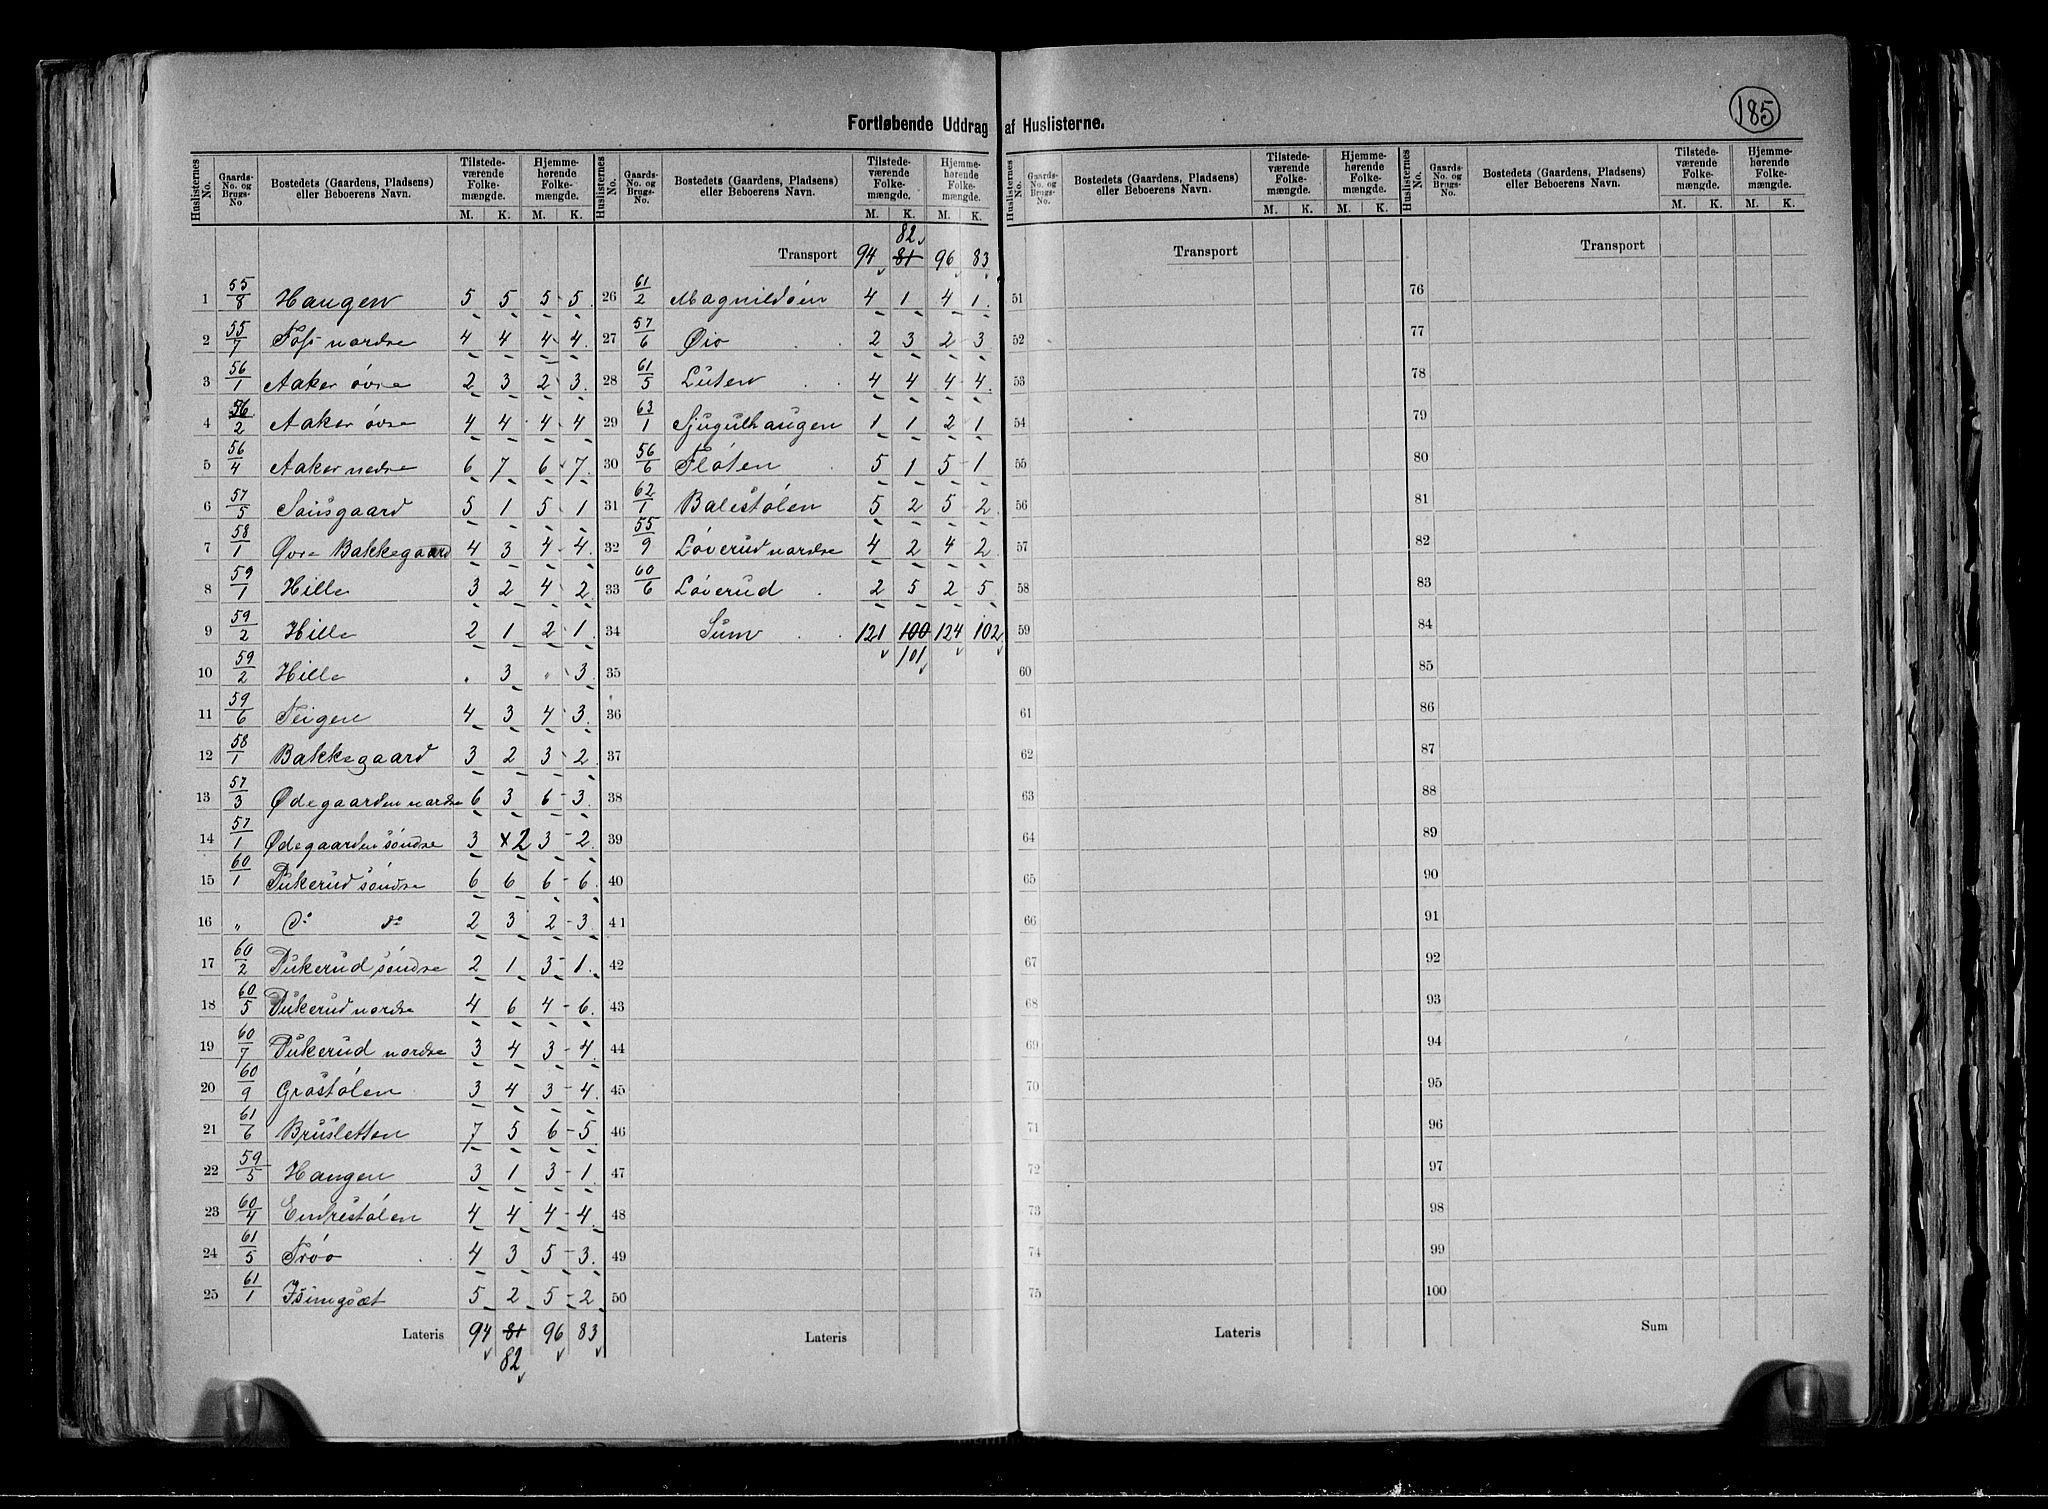 185
Fortløbende Uddrag af Huslisterne.
Huslisternes No. | Gaards-No. og Brugs-No | Bostedets (Gaardens, Pladsens) eller Beboerens Navn. | Tilstedeværende Folkemængde. M. K. | Hjemmehørende Folkemængde. M. K.
1 55/8 Haugen 5 5 5 5
2 55/7 Foss nordre 4 4 4 4
3 56/1 Aaker øvre 2 3 2 3
4 56/2 Aaker øvre 4 4 4 4
5 56/4 Aaker nedre 6 7 6 7
6 57/5 5 1 5 1
7 58/1 Øvre Bakkegaard 4 3 4 4
8 59/1 Hille 3 2 4 2
9 59/2 Hille 2 1 2 1
10 59/2 Hille . 3 . 3
11 59/6 Teigen 4 3 4 3
12 58/1 Bakkegaard 3 2 3 2
13 57/3 Ødegaarden nordre 6 3 6 3
14 57/1 Ødegaarden søndre 3 x2 3 2
15 60/1 Pukerud søndre 6 6 6 6
16 " do do 2 3 2 3
17 60/2 Pukerud søndre 2 1 3 1
18 60/5 Pukerud nordre 4 6 4 6
19 60/7 Pukerud nordre 3 4 3 4
20 60/9 Grøstølen 3 4 3 4
21 61/6 Brusletten 7 5 6 5
22 59/5 Haugen 3 1 3 1
23 60/4 Endrestølen 4 4 4 4
24 61/5 Trøo 4 3 5 3
25 61/1 5 2 5 2
Lateris 94 81 96 83
82
Huslisternes No. | Gaards-No. og Brugs-No. | Bostedets (Gaardens, Pladsens) eller Beboerens Navn. | Tilstedeværende Folkemængde. M. K. | Hjemmehørende Folkemængde. M. K.
82
Transport 94 81 96 83
26 61/2 Magnildøen 4 1 4 1
27 57/6 Øio 2 3 2 3
28 61/5 Luten 4 4 4 4
29 63/1 Sjugulhaugen 1 1 2 1
30 56/6 Fløten 5 1 5 1
31 62/1 Balestølen 5 2 5 2
32 55/9 Løverud nordre 4 2 4 2
33 60/6 Løverud 2 5 2 5
34 Sum 121 100 124 102
101
35
36
37
38
39
40
41
42
43
44
45
46
47
48
49
50
Lateris
Huslisternes No. | Gaards-No. og Brugs-No. | Bostedets (Gaardens, Pladsens) eller Beboerens Navn. | Tilstedeværende Folkemængde. M. K. | Hjemmehørende Folkemængde. M. K.
Transport
51
52
53
54
55
56
57
58
59
60
61
62
63
64
65
66
67
68
69
70
71
72
73
74
75
Lateris
Huslisternes No. | Gaards-No. og Brugs-No. | Bostedets (Gaardens, Pladsens) eller Beboerens Navn. | Tilstedeværende Folkemængde. M. K. | Hjemmehørende Folkemængde. M. K.
Transport
76
77
78
79
80
81
82
83
84
85
86
87
88
89
90
91
92
93
94
95
96
97
98
99
100
Sum